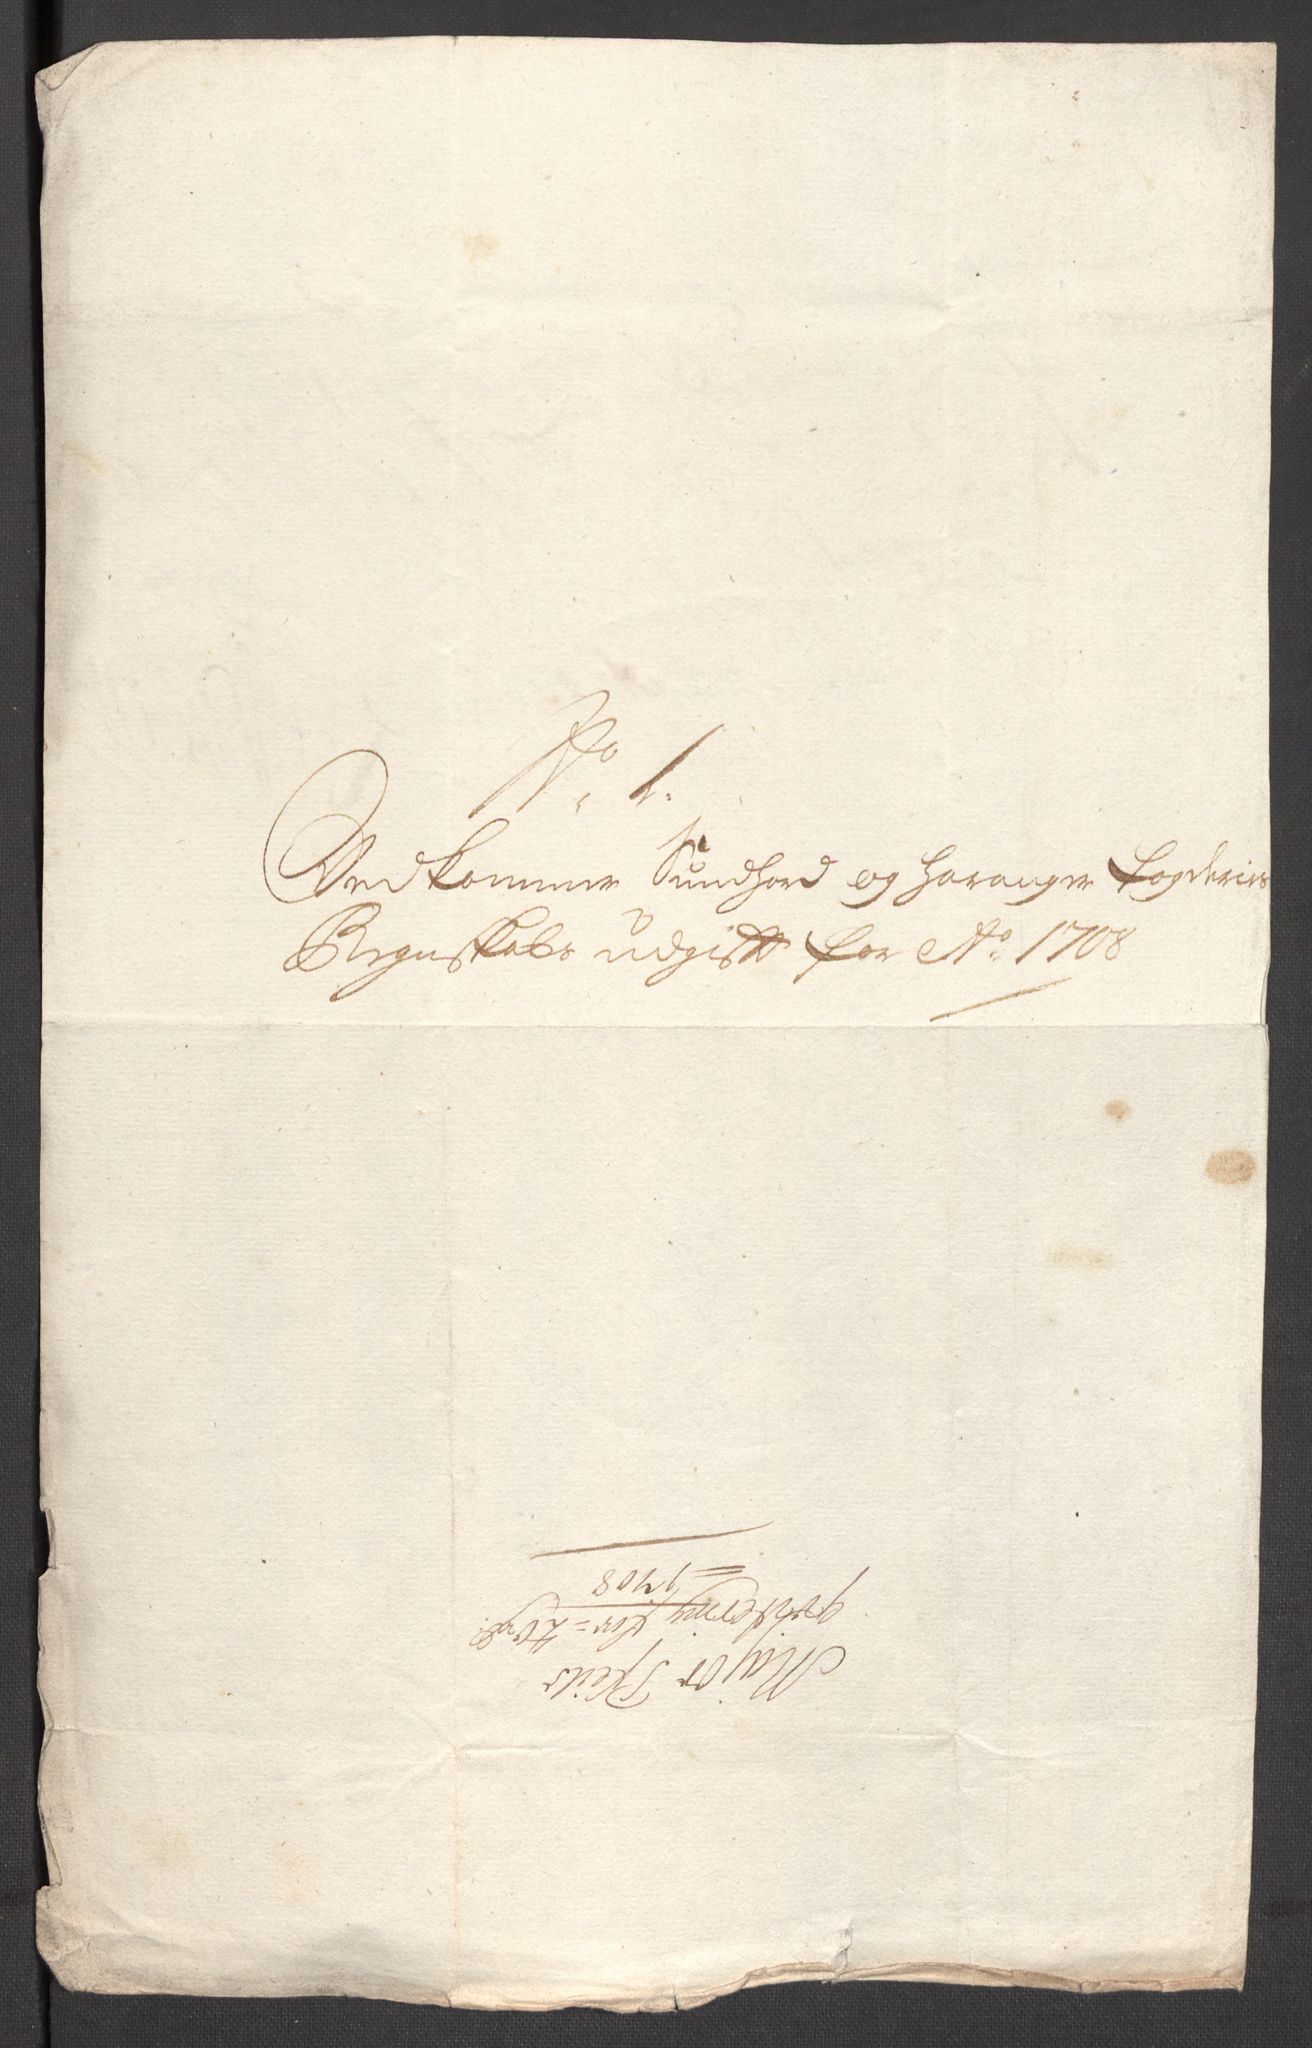 No 1.
Vedkommer Sundhord og Haranger Fogderies
Regnskabs udgift for Ao 1708
Major
qvittering for = 20
1708